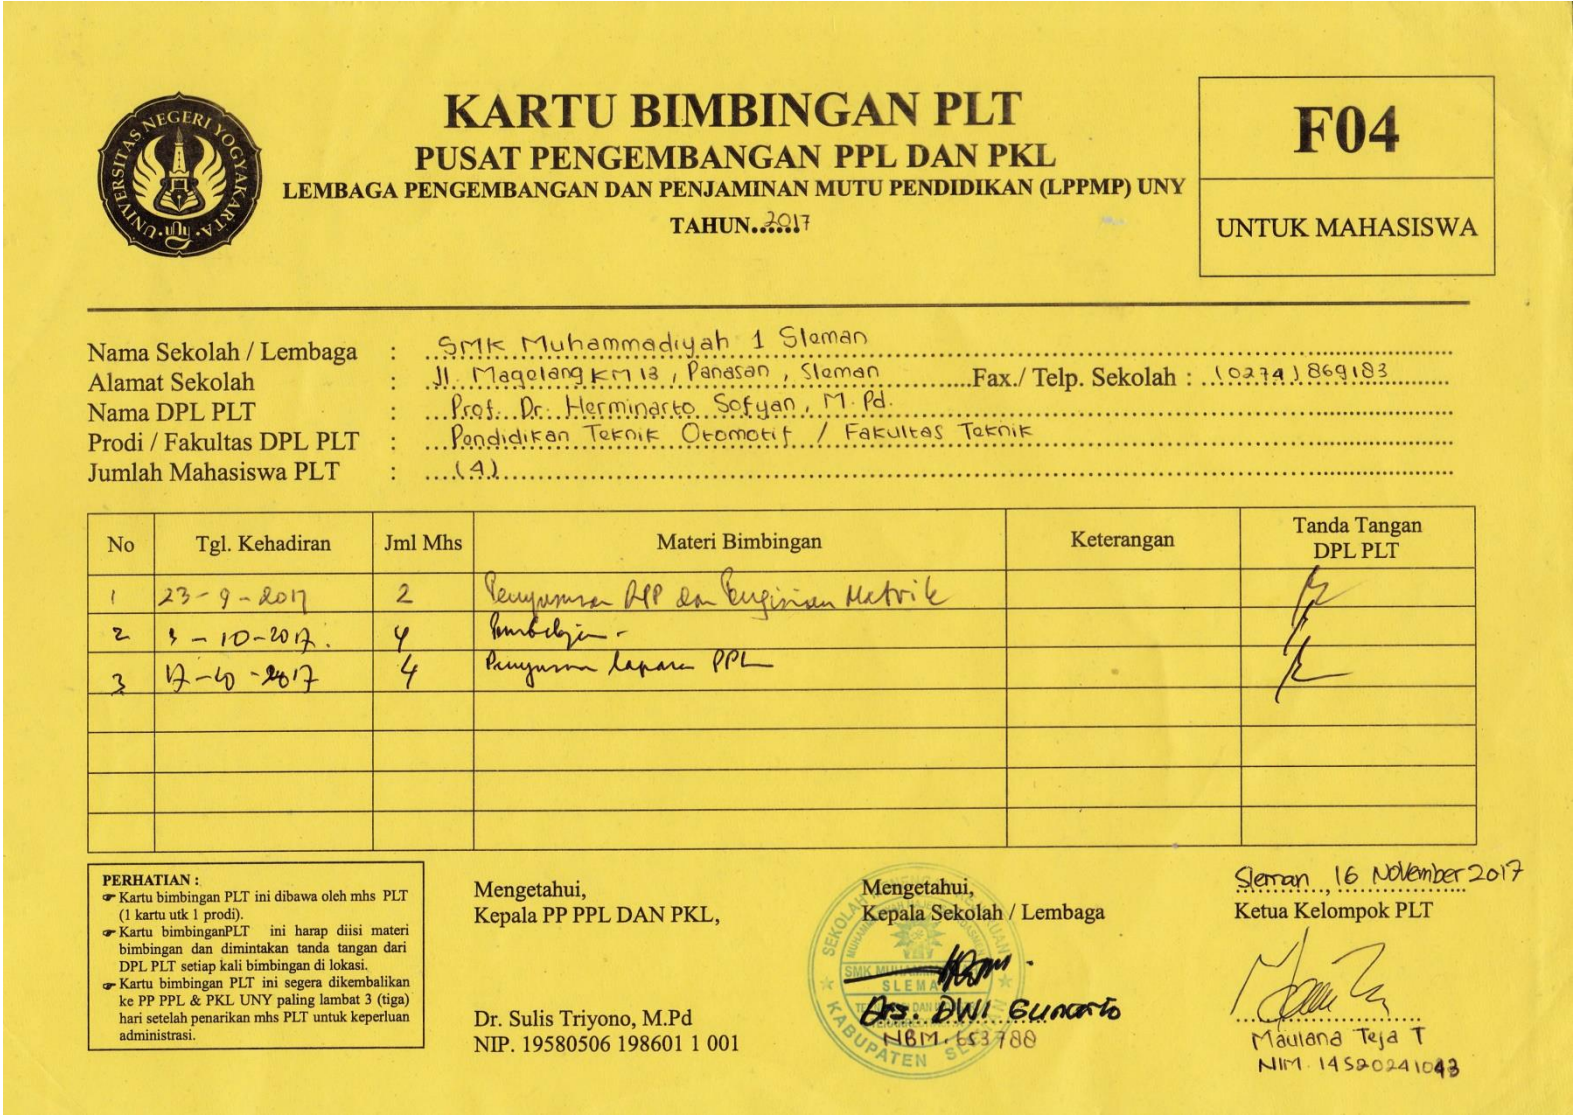 UNIVERSITAS NEGERI YOGYAKARTA
KARTU BIMBINGAN PLT
PUSAT PENGEMBANGAN PPL DAN PKL
LEMBAGA PENGEMBANGAN DAN PENJAMINAN MUTU PENDIDIKAN (LPPMP) UNY
TAHUN 2017
F04
UNTUK MAHASISWA
Nama Sekolah / Lembaga : SMK Muhammadiyah 1 Sleman
Alamat Sekolah : Jl. Magelang KM 13, Panasan, Sleman Fax./ Telp. Sekolah : (0274) 869183
Nama DPL PLT : Prof. Dr. Herminarto Sofyan, M.Pd.
Prodi / Fakultas DPL PLT : Pendidikan Teknik Otomotif / Fakultas Teknik
Jumlah Mahasiswa PLT : (4)
No Tgl. Kehadiran Jml Mhs Materi Bimbingan Keterangan Tanda Tangan DPL PLT
1 23-9-2017 2 Penyusunan RPP dan Pengisian Matrik
2 -10-2017. 4
3 17-10-2017 4 Penyusunan laporan PPL
PERHATIAN :
Kartu bimbingan PLT ini dibawa oleh mhs PLT
(1 kartu utk 1 prodi).
Kartu bimbinganPLT ini harap diisi materi
bimbingan dan dimintakan tanda tangan dari
DPL PLT setiap kali bimbingan di lokasi.
Kartu bimbingan PLT ini segera dikembalikan
ke PP PPL & PKL UNY paling lambat 3 (tiga)
hari setelah penarikan mhs PLT untuk keperluan
administrasi.
Mengetahui,
Kepala PP PPL DAN PKL,
Dr. Sulis Triyono, M.Pd
NIP. 19580506 198601 1 001
Mengetahui,
Kepala Sekolah / Lembaga
Drs. DWI Gunarto
NBM. 653788
Sleman, 16 November 2017
Ketua Kelompok PLT
Maulana Teja T
NIM. 14520241043